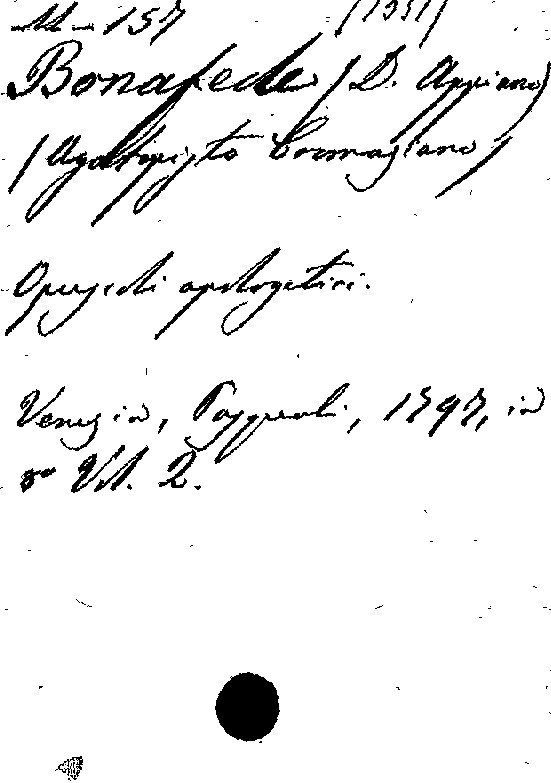 M-157 (1551)
Bonafede (D. Appiano)
(Agatopisto Cromaziano)
Opuscoli apologetici.
Venezia, Pasquali, 1797, in
8º Vol. 2.